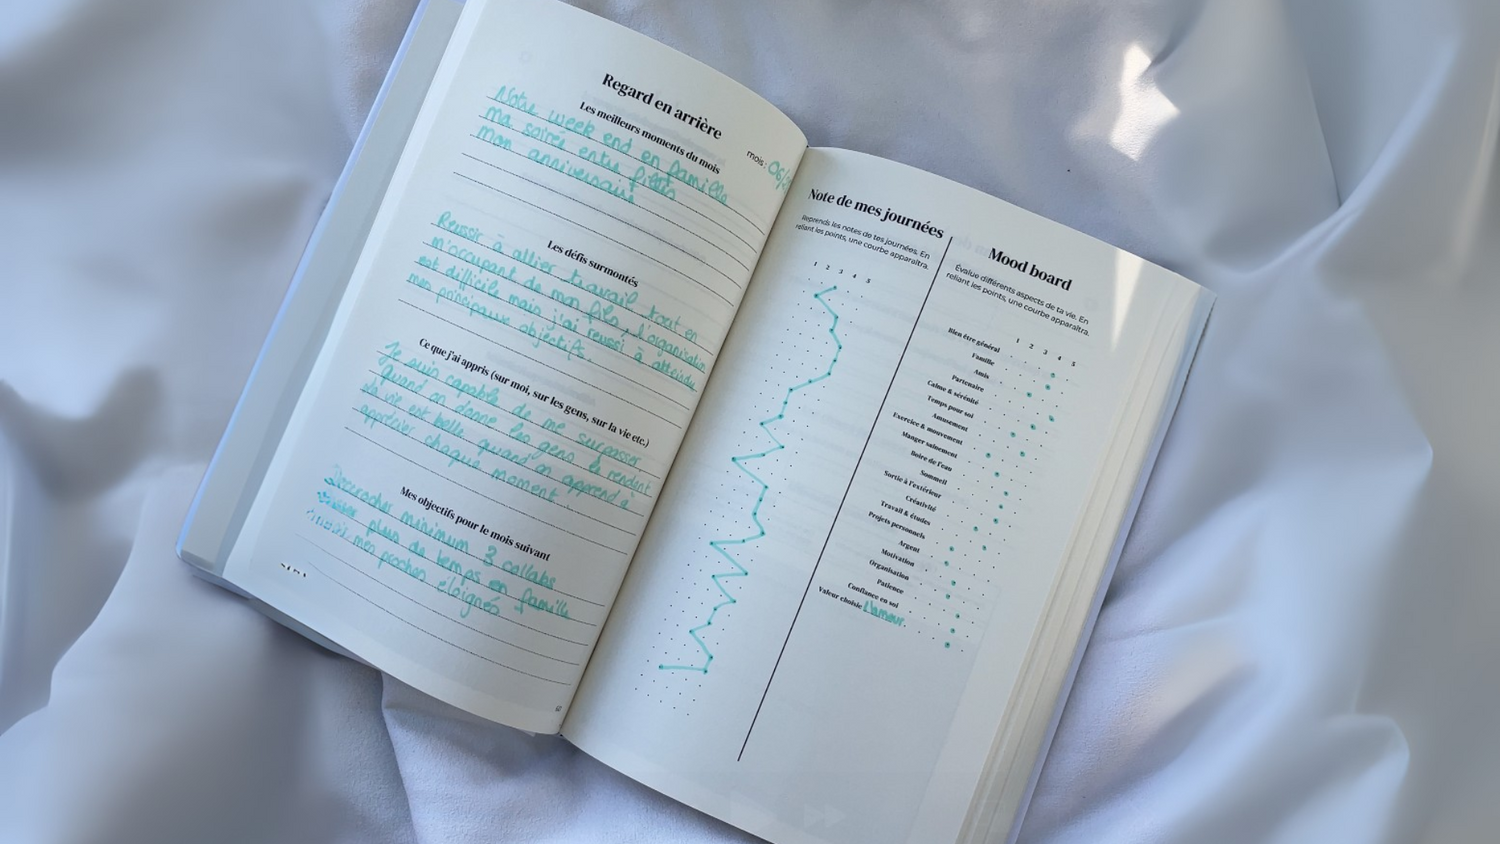 Regard en arrière
mois : 06/
Les meilleurs moments du mois
Notre week end en famille
ma soirée entre filles
mon anniversaire
Les défis surmontés
Réussir à allier travail tout en
m'occupant de mon fils, l'organisation
est difficile mais j'ai réussi à atteindre
mes principaux objectifs.
Ce que j'ai appris (sur moi, sur les gens, sur la vie etc.)
Je suis capable de me surpasser
quand on donne les gens le rendent
la vie est belle quand on apprend à
apprécier chaque moment.
Mes objectifs pour le mois suivant
Décrocher minimum 3 collabs
plus de temps en famille
mes proches éloignés
Note de mes journées
Reprends les notes de tes journées. En
reliant les points, une courbe apparaîtra.
1 2 3 4 5
Mood board
Évalue différents aspects de ta vie. En
reliant les points, une courbe apparaîtra.
1 2 3 4 5
Bien être général
Famille
Amis
Partenaire
Calme & sérénité
Temps pour soi
Amusement
Exercice & mouvement
Manger sainement
Boire de l'eau
Sommeil
Sortie à l'extérieur
Créativité
Travail & études
Projets personnels
Argent
Motivation
Organisation
Patience
Confiance en soi
Valeur choisie L'amour